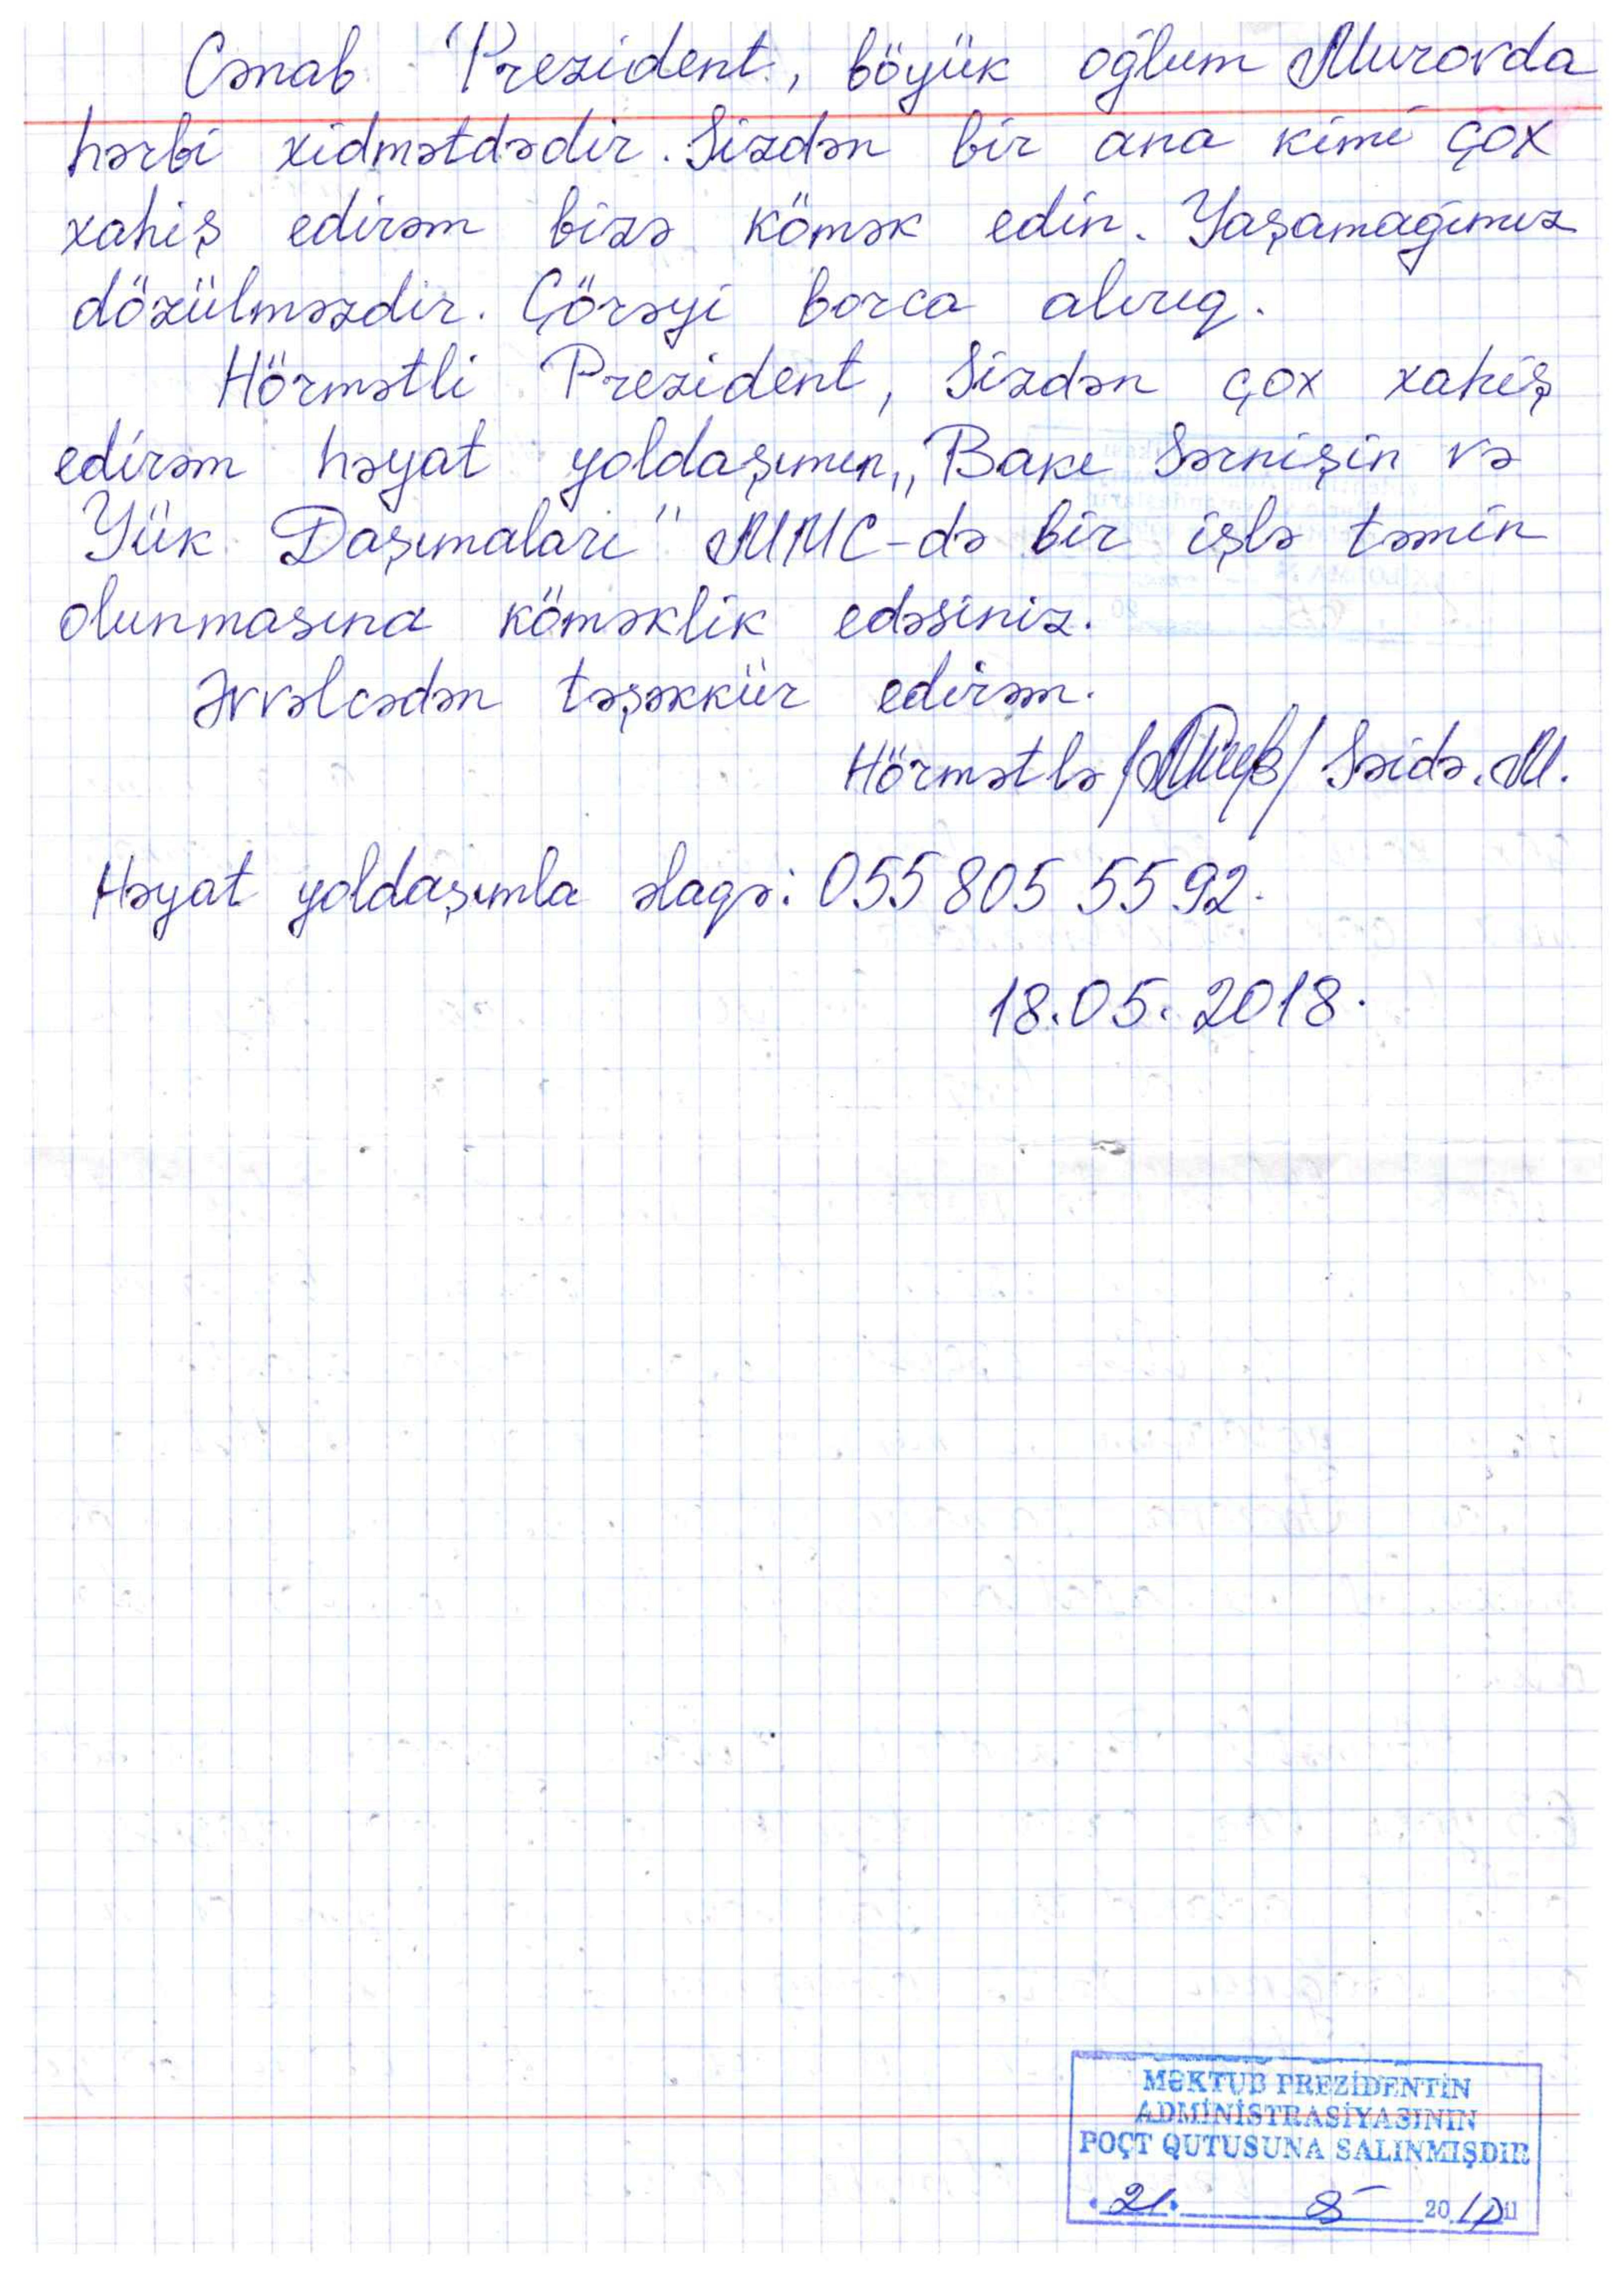 Cənab Prezident, böyük oğlum Murovda
hərbi xidmətdədir. Sizdən bir ana kimi çox
xahiş edirəm bizə kömək edin. Yaşamağımız
dözülməzdir. Çörəyi borca alırıq.
Hörmətli Prezident, Sizdən çox xahiş
edirəm həyat yoldaşımın „Bakı Sərnişin və
Yük Daşımaları" MMC-də bir işlə təmin
olunmasına köməklik edəsiniz.
Əvvəlcədən təşəkkür edirəm.
Hörmətlə / / Səidə. M.
Həyat yoldaşımla əlaqə: 055 805 55 92.
18.05.2018.
MƏKTUB PREZİDENTİN
ADMİNİSTRASİYASININ
POÇT QUTUSUNA SALINMIŞDIR
21. 20 il